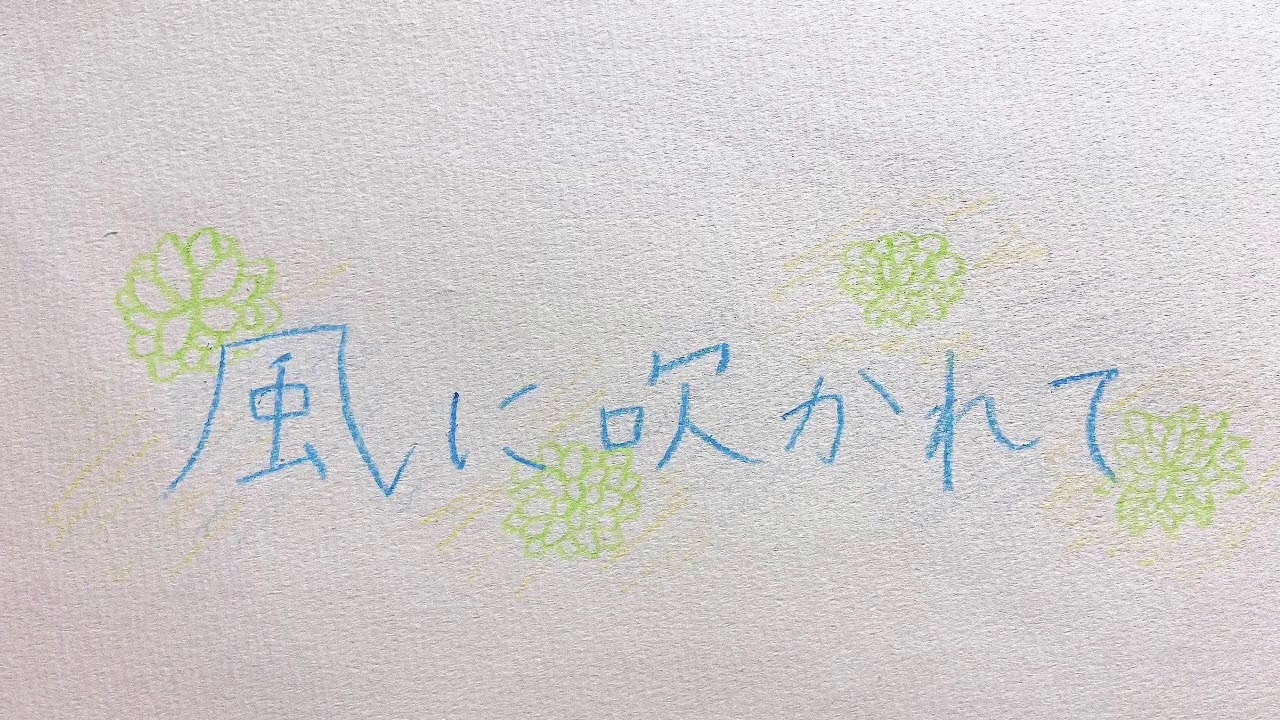 風に吹かれて